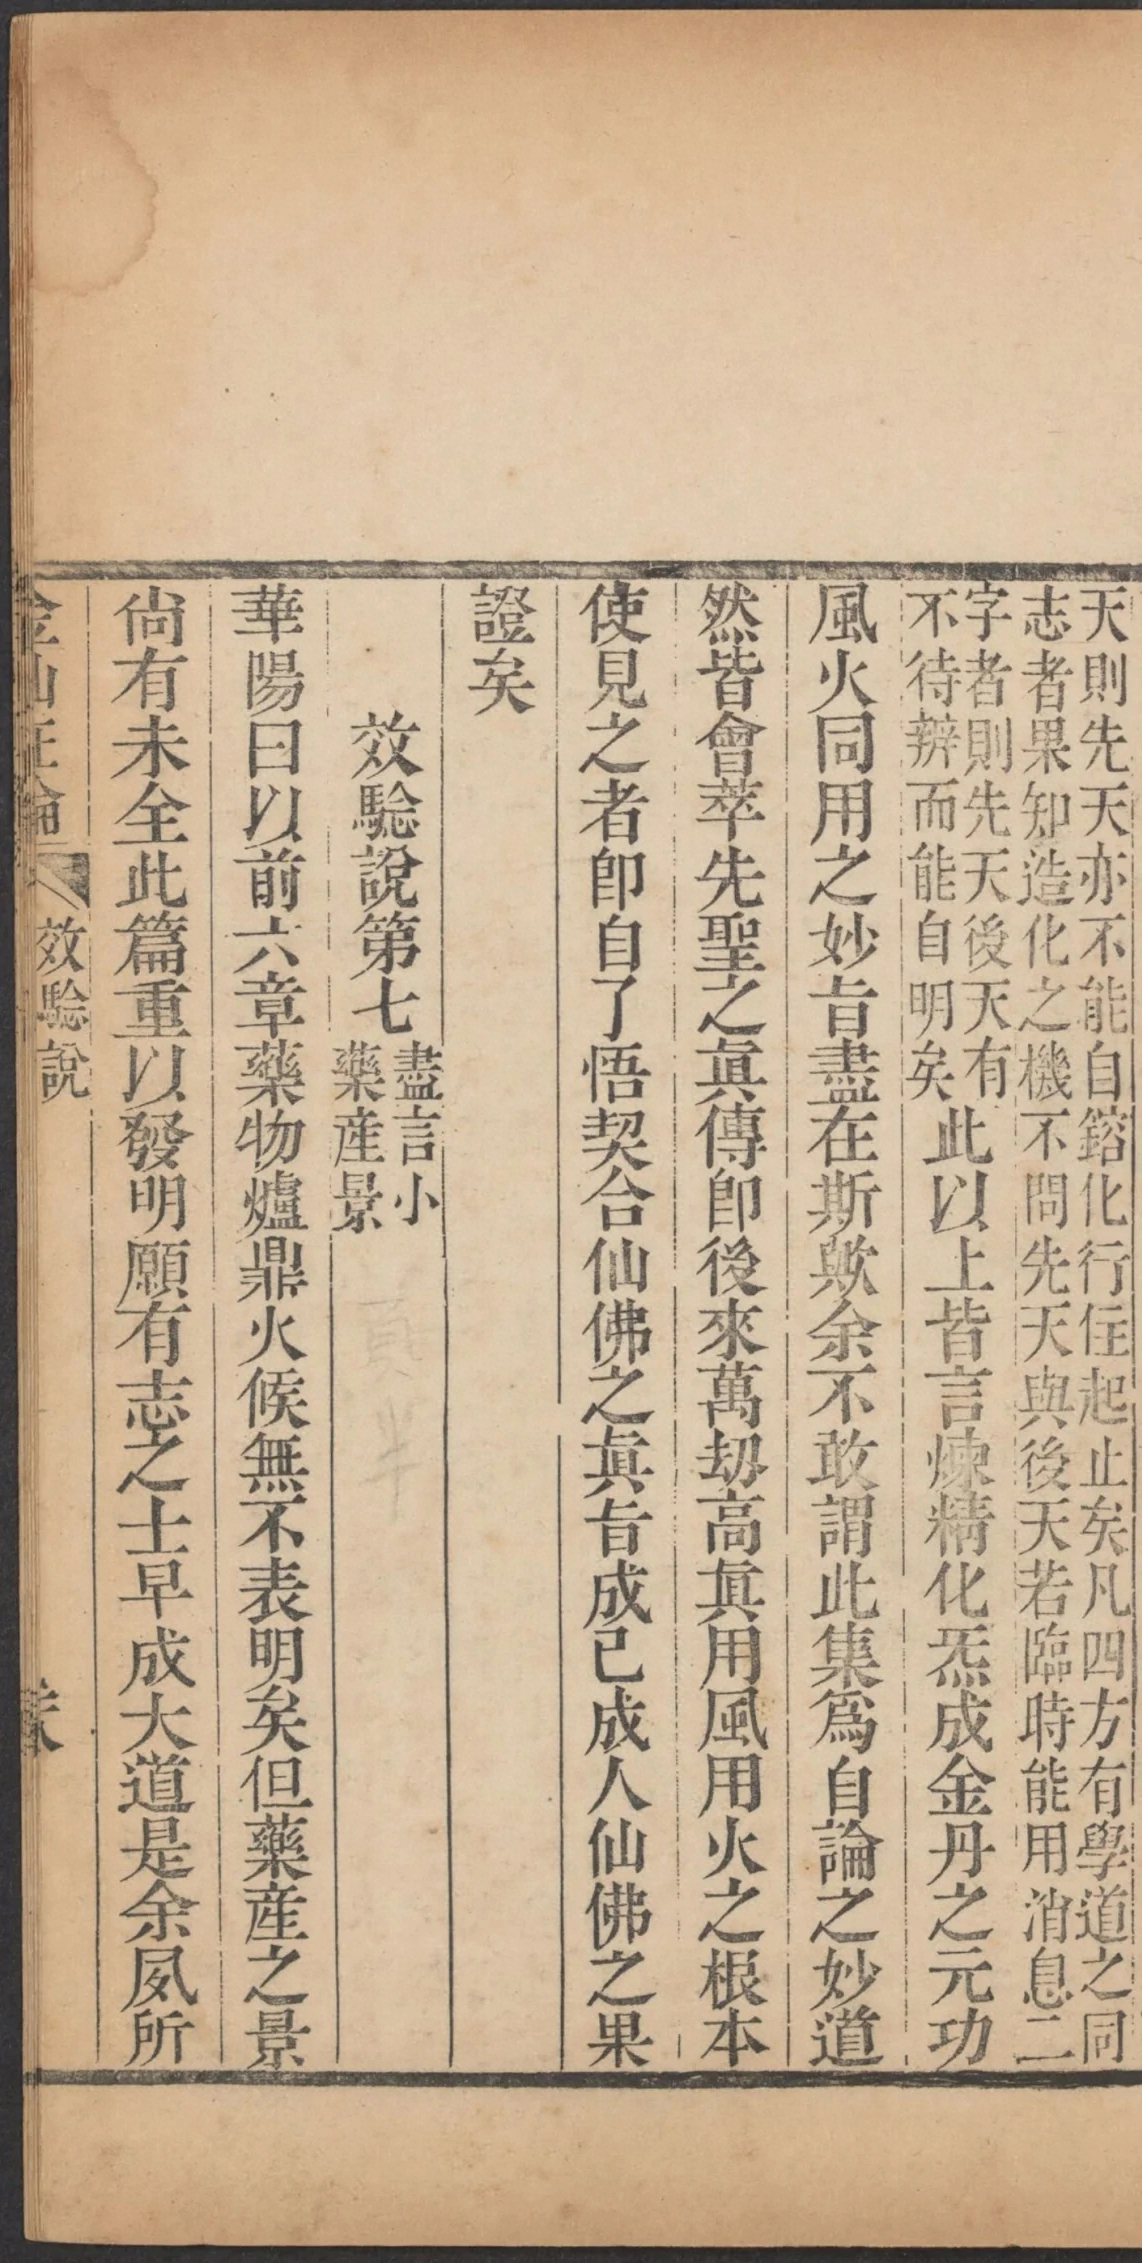 天則先天亦不能自鎔化行住起止矣凡四方有學道之同
志者果知造化之機不問先天與後天若臨時能用消息二
字者則先天後天有
不待辨而能自明矣
此以上皆言煉精化炁成金丹之元功
風火同用之妙旨盡在斯歟余不敢謂此集爲自論之妙道
然皆會萃先聖之眞傳卽後來萬劫高眞用風用火之根本
使見之者卽自了悟契合仙佛之眞旨成己成人仙佛之果
證矣
效驗說第七
盡言小
藥産景
華陽曰以前六章藥物爐鼎火候無不表明矣但藥産之景
尙有未全此篇重以發明願有志之士早成大道是余夙所
金仙正論
效驗說